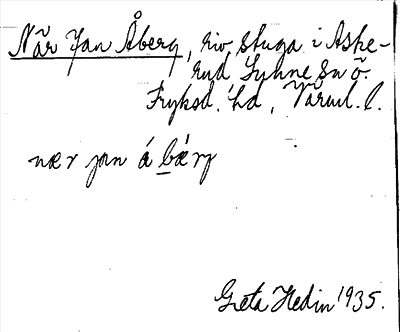 När Jan Åberg, riv. stuga i Aske-
rud, Lysvik sn ö.
Fryksd. hd, Värml. l.
nær jan á bǽrj
Greta Hedin 1935.